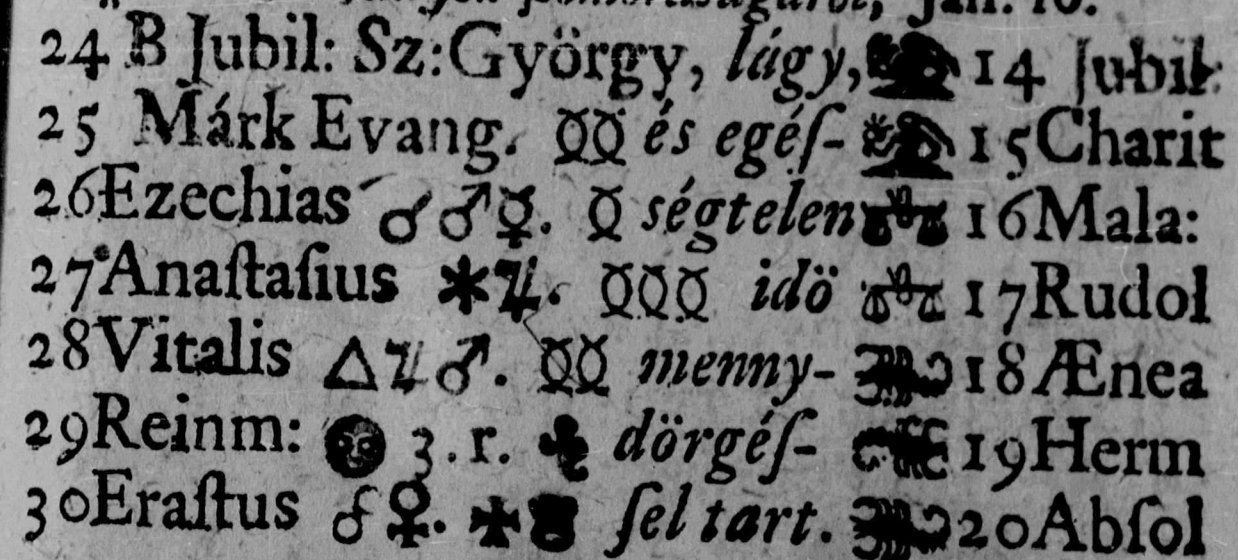 Jan. 10.
24 B Jubil: Sz: György, lágy, 14 Jubil:
25 Márk Evang. és egéſ- 15 Charit
26 Ezechias ☌ ♂ ☿. ségtelen 16 Mala:
27 Anaſtaſius ✱ ♃. idö 17 Rudol
28 Vitalis △ ♃ ♂. menny- 18 Ænea
29 Reinm: 3. r. ♣ dörgéſ- 19 Herm
30 Eraſtus ☌ ♀. ✠ ſel tart. 20 Abſol